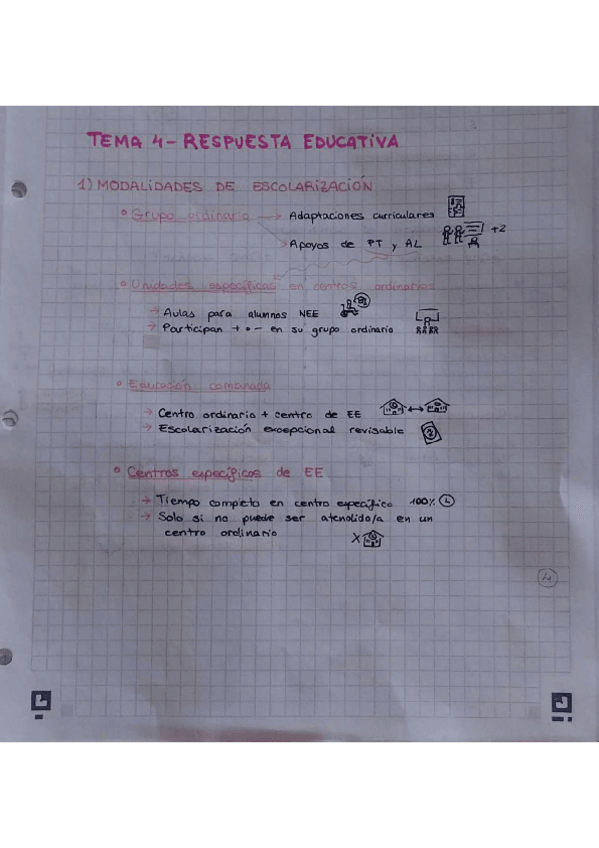 TEMA 4 - RESPUESTA EDUCATIVA
1) MODALIDADES DE ESCOLARIZACIÓN
Grupo ordinario → Adaptaciones curriculares
Apoyos de PT y AL +2
Unidades específicas en centros ordinarios
→ Aulas para alumnos NEE
→ Participan + o - en su grupo ordinario
Educación combinada
→ Centro ordinario + centro de EE
→ Escolarización excepcional revisable
Centros específicos de EE
→ Tiempo completo en centro específico 100%
→ Solo si no puede ser atendido/a en un
centro ordinario X
4